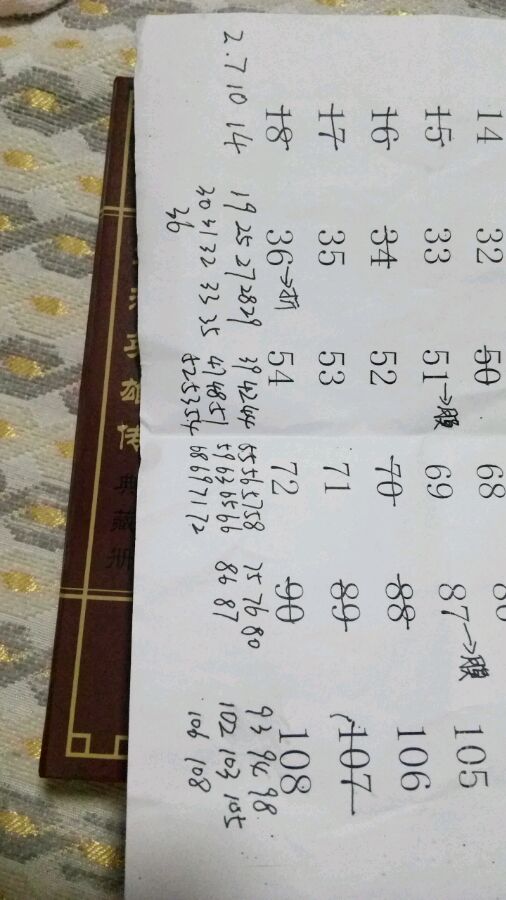 14 32 50 68
15 33 51→ 69 87→ 105
16 34 52 70 88 106
17 35 53 71 89 107
18 36→折 54 72 90 108
2.7 10 14
19 25 27 28 29
30 31 32 33 35
36
39 42 44
47 48 51
52 53 54
55 56 57 58
59 63 65 66
68 69 71 72
75 76 80
86 87
93 94 98
102 103 105
106 108
英雄传
典藏册